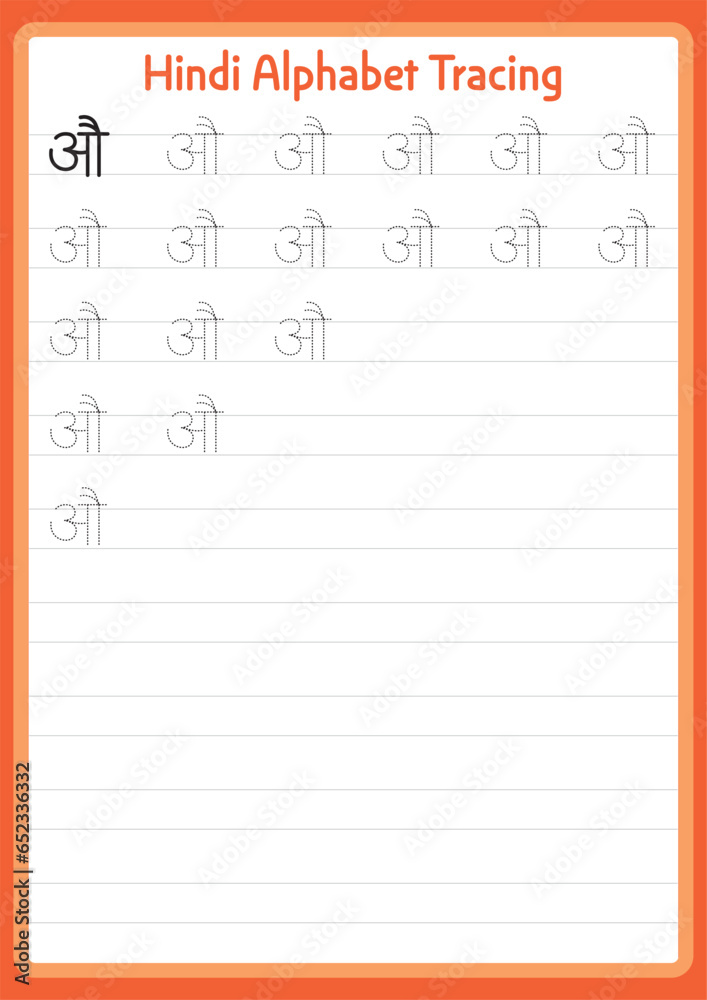 Hindi Alphabet Tracing
औ औ औ औ औ औ
औ औ औ औ औ औ
औ औ औ
औ औ
औ
Adobe Stock | #652336332